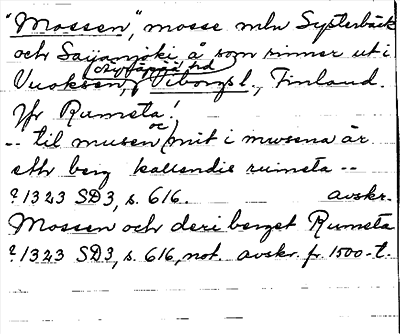 "Mossen", mosse mln Systerbäck
och Saijanjoki, å som rinner ut i
Vuoksen, Äyräpää hd
Viborgs l., Finland.
Jfr Rumeta!
-- til musen oc mit i mwsena är
ett berg kallendis rumeta --
? 1323 SD3, s. 616. avskr.
Mossen och deri berget Rumeta
? 1323 SD3, s. 616, not. avskr. fr. 1500-t.